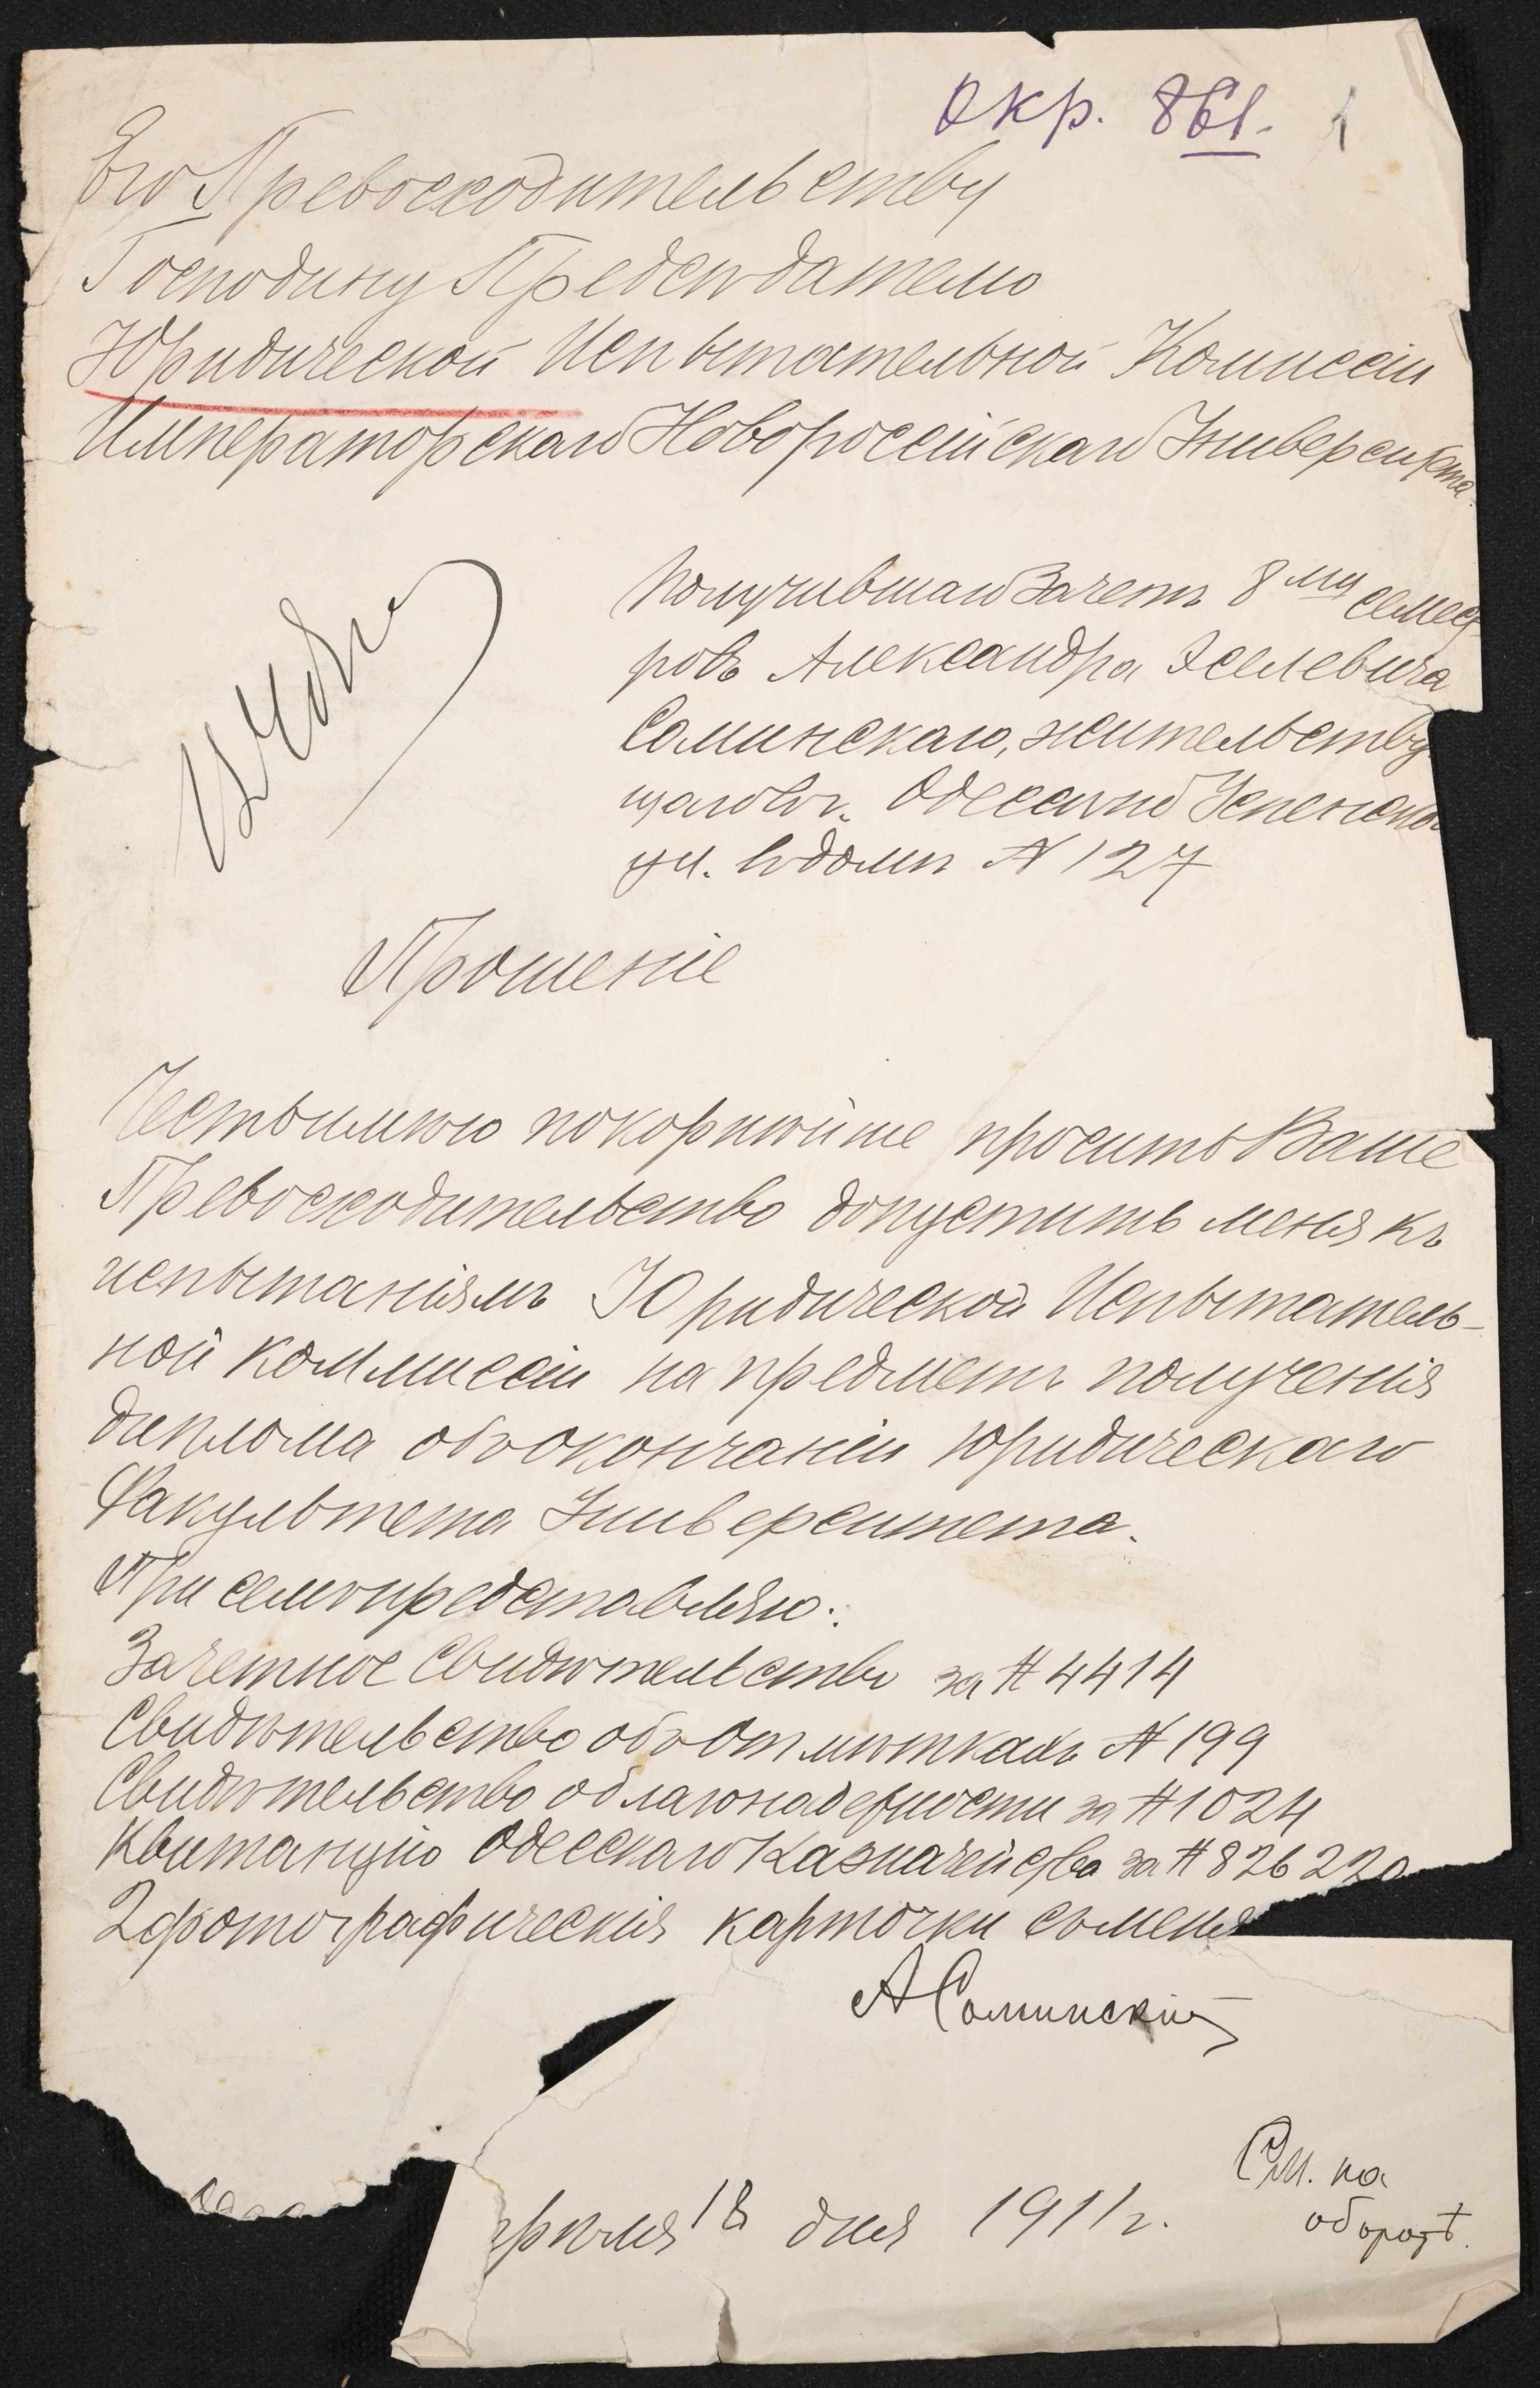 окр. 861. 1
Его Превосходительству
Господину Предсѣдателю
Юридической Испытательной Комиссіи
Императорскаго Новороссійскаго Университета.
Получившаго зачетъ 8ми семест
ровъ Александра Эселевича
Соминскаго, жительству
щаго въ г. Одессѣ по Успенской
ул. въ домѣ № 127
Прошеніе
Честь имѣю покорнѣйше просить Ваше
Превосходительство допустить меня къ
испытаніямъ Юридической Испытатель-
ной коммиссіи на предметъ полученія
диплома объ окончаніи юридическаго
Факультета Университета.
При семъ представляю:
Зачетное Свидѣтельство за № 4414
Свидѣтельство объ отмѣткахъ № 199
Свидѣтельство о благонадежности за № 1024
Квитанцію Одесскаго Казначейства за № 826220
2 фотографическія карточки съ меня
А Соминскій
рѣля 18 дня 1911 г.
См. на
оборотѣ.